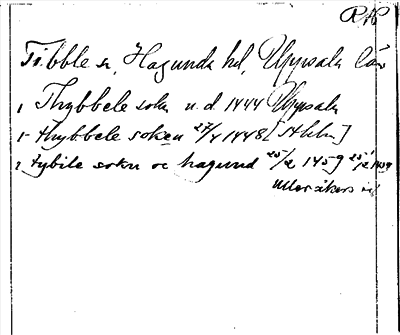 RAP
Tibble sn, Hagunda hd, Uppsala län
1 Thybbele sokn u.d. 1444 Uppsala
1 thybbele soken 27/1 1448 [Sthlm]
1 tybile sokn oc hagund 25/2 1459 25/2 1459
Ulleråkers